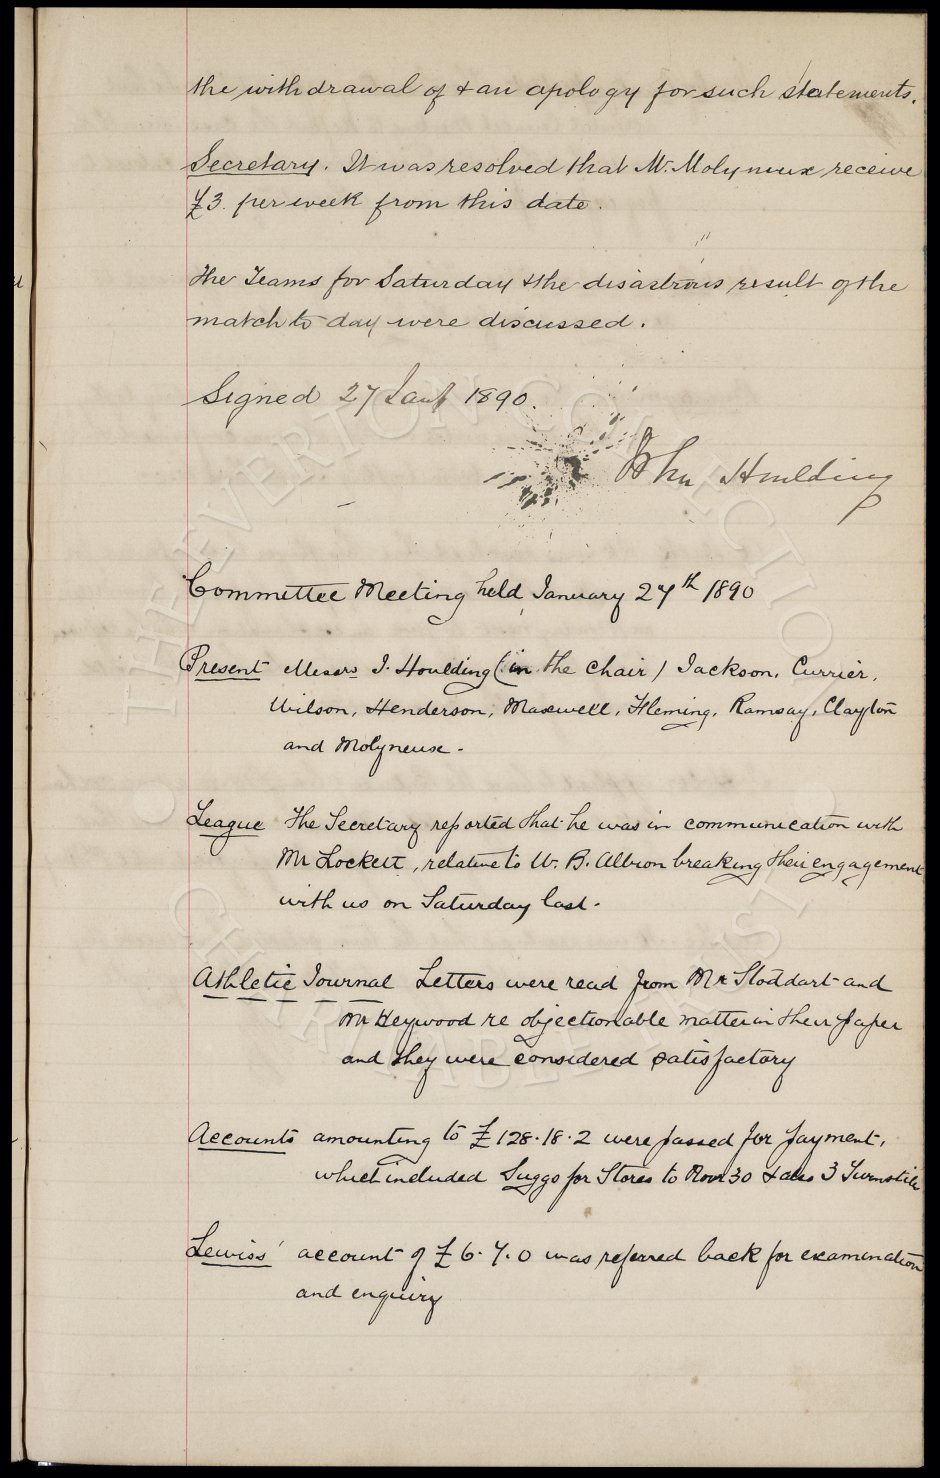 the withdrawal of & an apology for such statements.
Secretary. It was resolved that Mr. Molyneux receive
£3 per week from this date.
The Teams for Saturday & the disastrous result of the
match to day were discussed.
Signed 27 Jany 1890.
John Houlding
Committee Meeting held January 27th 1890
Present Messrs J. Houlding (in the chair) Jackson, Currier,
Wilson, Henderson, Maxwell, Fleming, Ramsay, Clayton
and Molyneux.
League The Secretary reported that he was in communication with
Mr Lockett, relative to W. B. Albion breaking their engagement
with us on Saturday last.
Athletic Journal Letters were read from Mr Stoddart and
Mr Heywood re objectionable matter in their paper
and they were considered satisfactory
Accounts amounting to £128.18.2 were passed for payment,
which included Suggs for Stores to Novr 30 & also 3 Turnstiles
Lewiss' account of £6.7.0 was referred back for examination
and enquiry
THE EVERTON COLLECTION
CHARITABLE TRUST